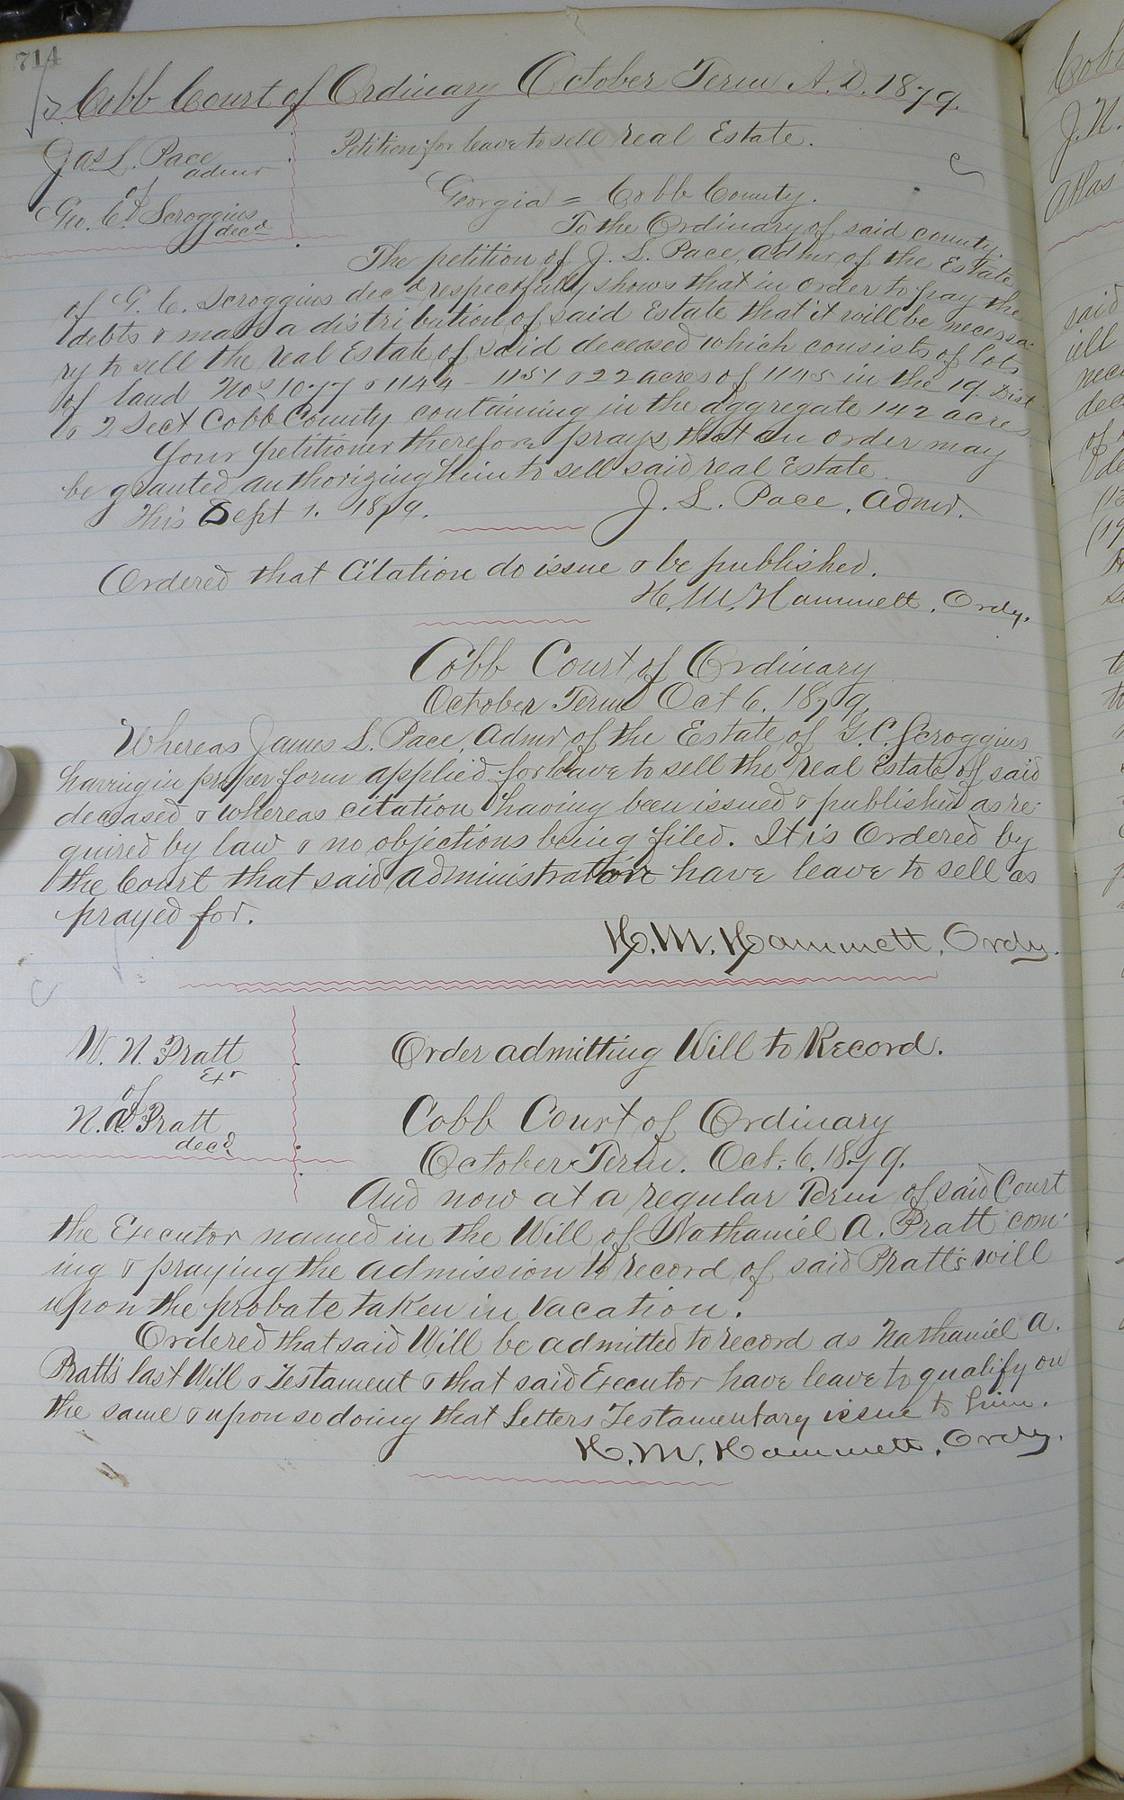 714
Cobb Court of Ordinary October Term A.D. 1879.
Jas L. Pace
admr
of
Geo. C. Scroggins
decd
Petition for leave to sell real Estate.
Georgia = Cobb County.
To the Ordinary of said county.
The petition of J. L. Pace, admr of the Estate
of G. C. Scroggins decd respectfully shows that in order to pay the
debts & make a distribution of said Estate that it will be necessa-
ry to sell the real Estate of said deceased which consists of lots
of land Nos 1077 & 1144 - 1151 & 22 acres of 1145 in the 19. Dist
& 2 Sect Cobb County containing in the aggregate 142 acres
Your petitioner therefore prays that an order may
be granted authorizing him to sell said real Estate
This Sept 1. 1879. J. L. Pace, Admr.
Ordered that Citation do issue & be published.
H. M. Hammett, Ordy.
Cobb Court of Ordinary
October Term Oct 6. 1879.
Whereas James L. Pace, Admr of the Estate of G. C. Scroggins
having in proper form applied for leave to sell the real Estate of said
deceased & whereas citation having been issued & published as re-
quired by law & no objections being filed. It is Ordered by
the Court that said administrator have leave to sell as
prayed for.
H. M. Hammett, Ordy.
W. N. Pratt
Exr
of
N. A. Pratt
decd
Order admitting Will to Record.
Cobb Court of Ordinary
October Term. Oct. 6. 1879.
And now at a regular Term of said Court
the Executor named in the Will of Nathaniel A. Pratt com-
ing & praying the admission to record of said Pratt's will
upon the probate taken in Vacation.
Ordered that said Will be admitted to record as Nathaniel A.
Pratt's last Will & Testament & that said Executor have leave to qualify on
the same & upon so doing that Letters Testamentary issue to him.
H. M. Hammett, Ordy.